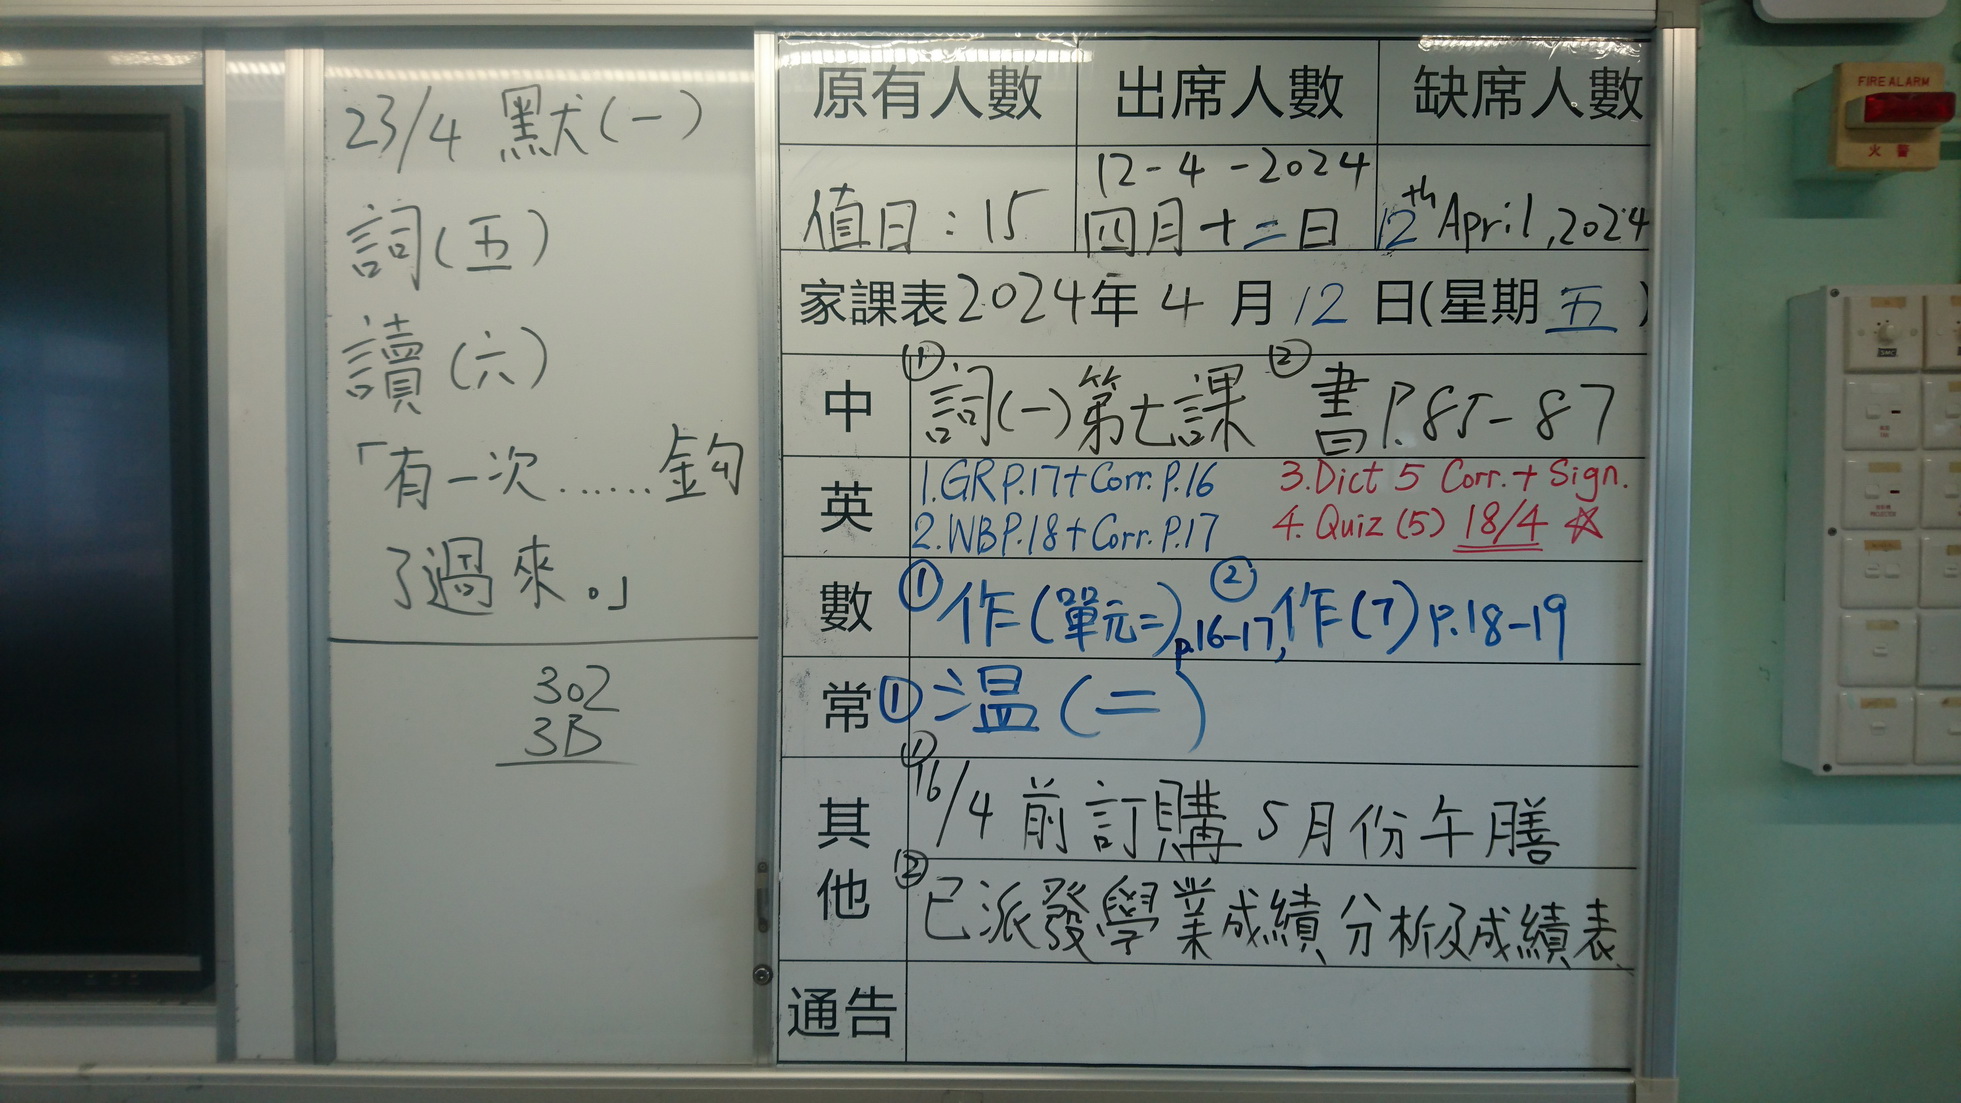 23/4 默(一)
詞(五)
讀(六)
「有一次……鈎
了過來。」
302
3B
原有人數 出席人數 缺席人數
值日:15 12-4-2024 四月十二日 12th April, 2024
家課表2024年4月12日(星期五)
中 ①詞(一)第七課 ②書P.85-87
英 1.GRP.17+Corr.P.16 3.Dict 5 Corr.+Sign.
2.WBP.18+Corr.P.17 4.Quiz (5) 18/4 ☆
數 ①作(單元二)p.16-17, ②作(7)p.18-19
常 ①温(二)
其他 ①16/4前訂購5月份午膳
②已派發學業成績分析及成績表
通告
FIRE ALARM
火警